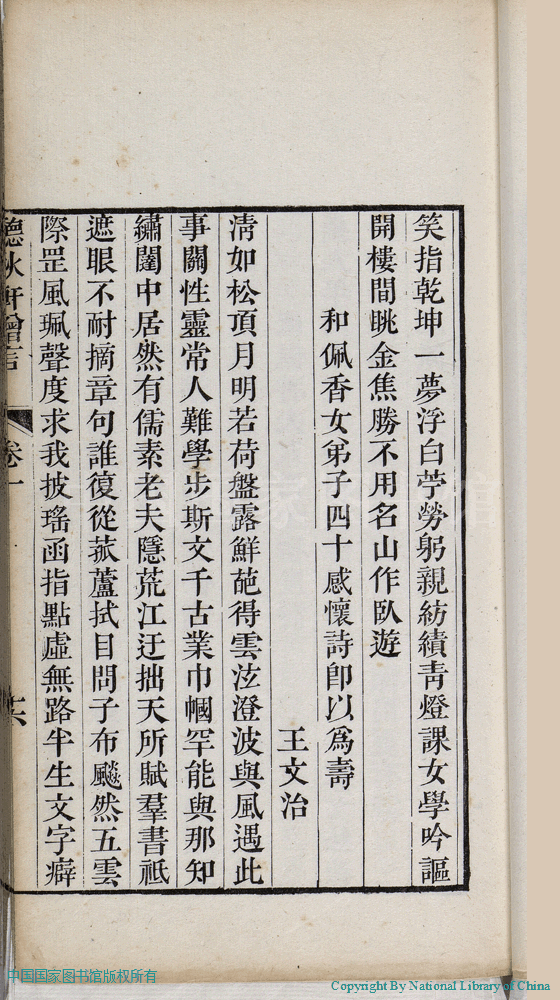 笑指乾坤一夢浮白苧勞躬親紡績青燈課女學吟謳
開樓間眺金焦勝不用名山作臥遊
和佩香女弟子四十感懷詩即以為壽
王文治
淸如松頂月明若荷盤露鮮葩得雲泫澄波與風遇此
事關性靈常人難學步斯文千古業巾幗罕能與那知
繡闥中居然有儒素老夫隱荒江迂拙天所賦羣書祗
遮眼不耐摘章句誰復從菰蘆拭目問子布飇然五雲
際罡風珮聲度求我披瑤函指點虛無路半生文字癖
聽秋軒贈言
卷一
十六
中国国家图书馆版权所有
Copyright By National Library of China